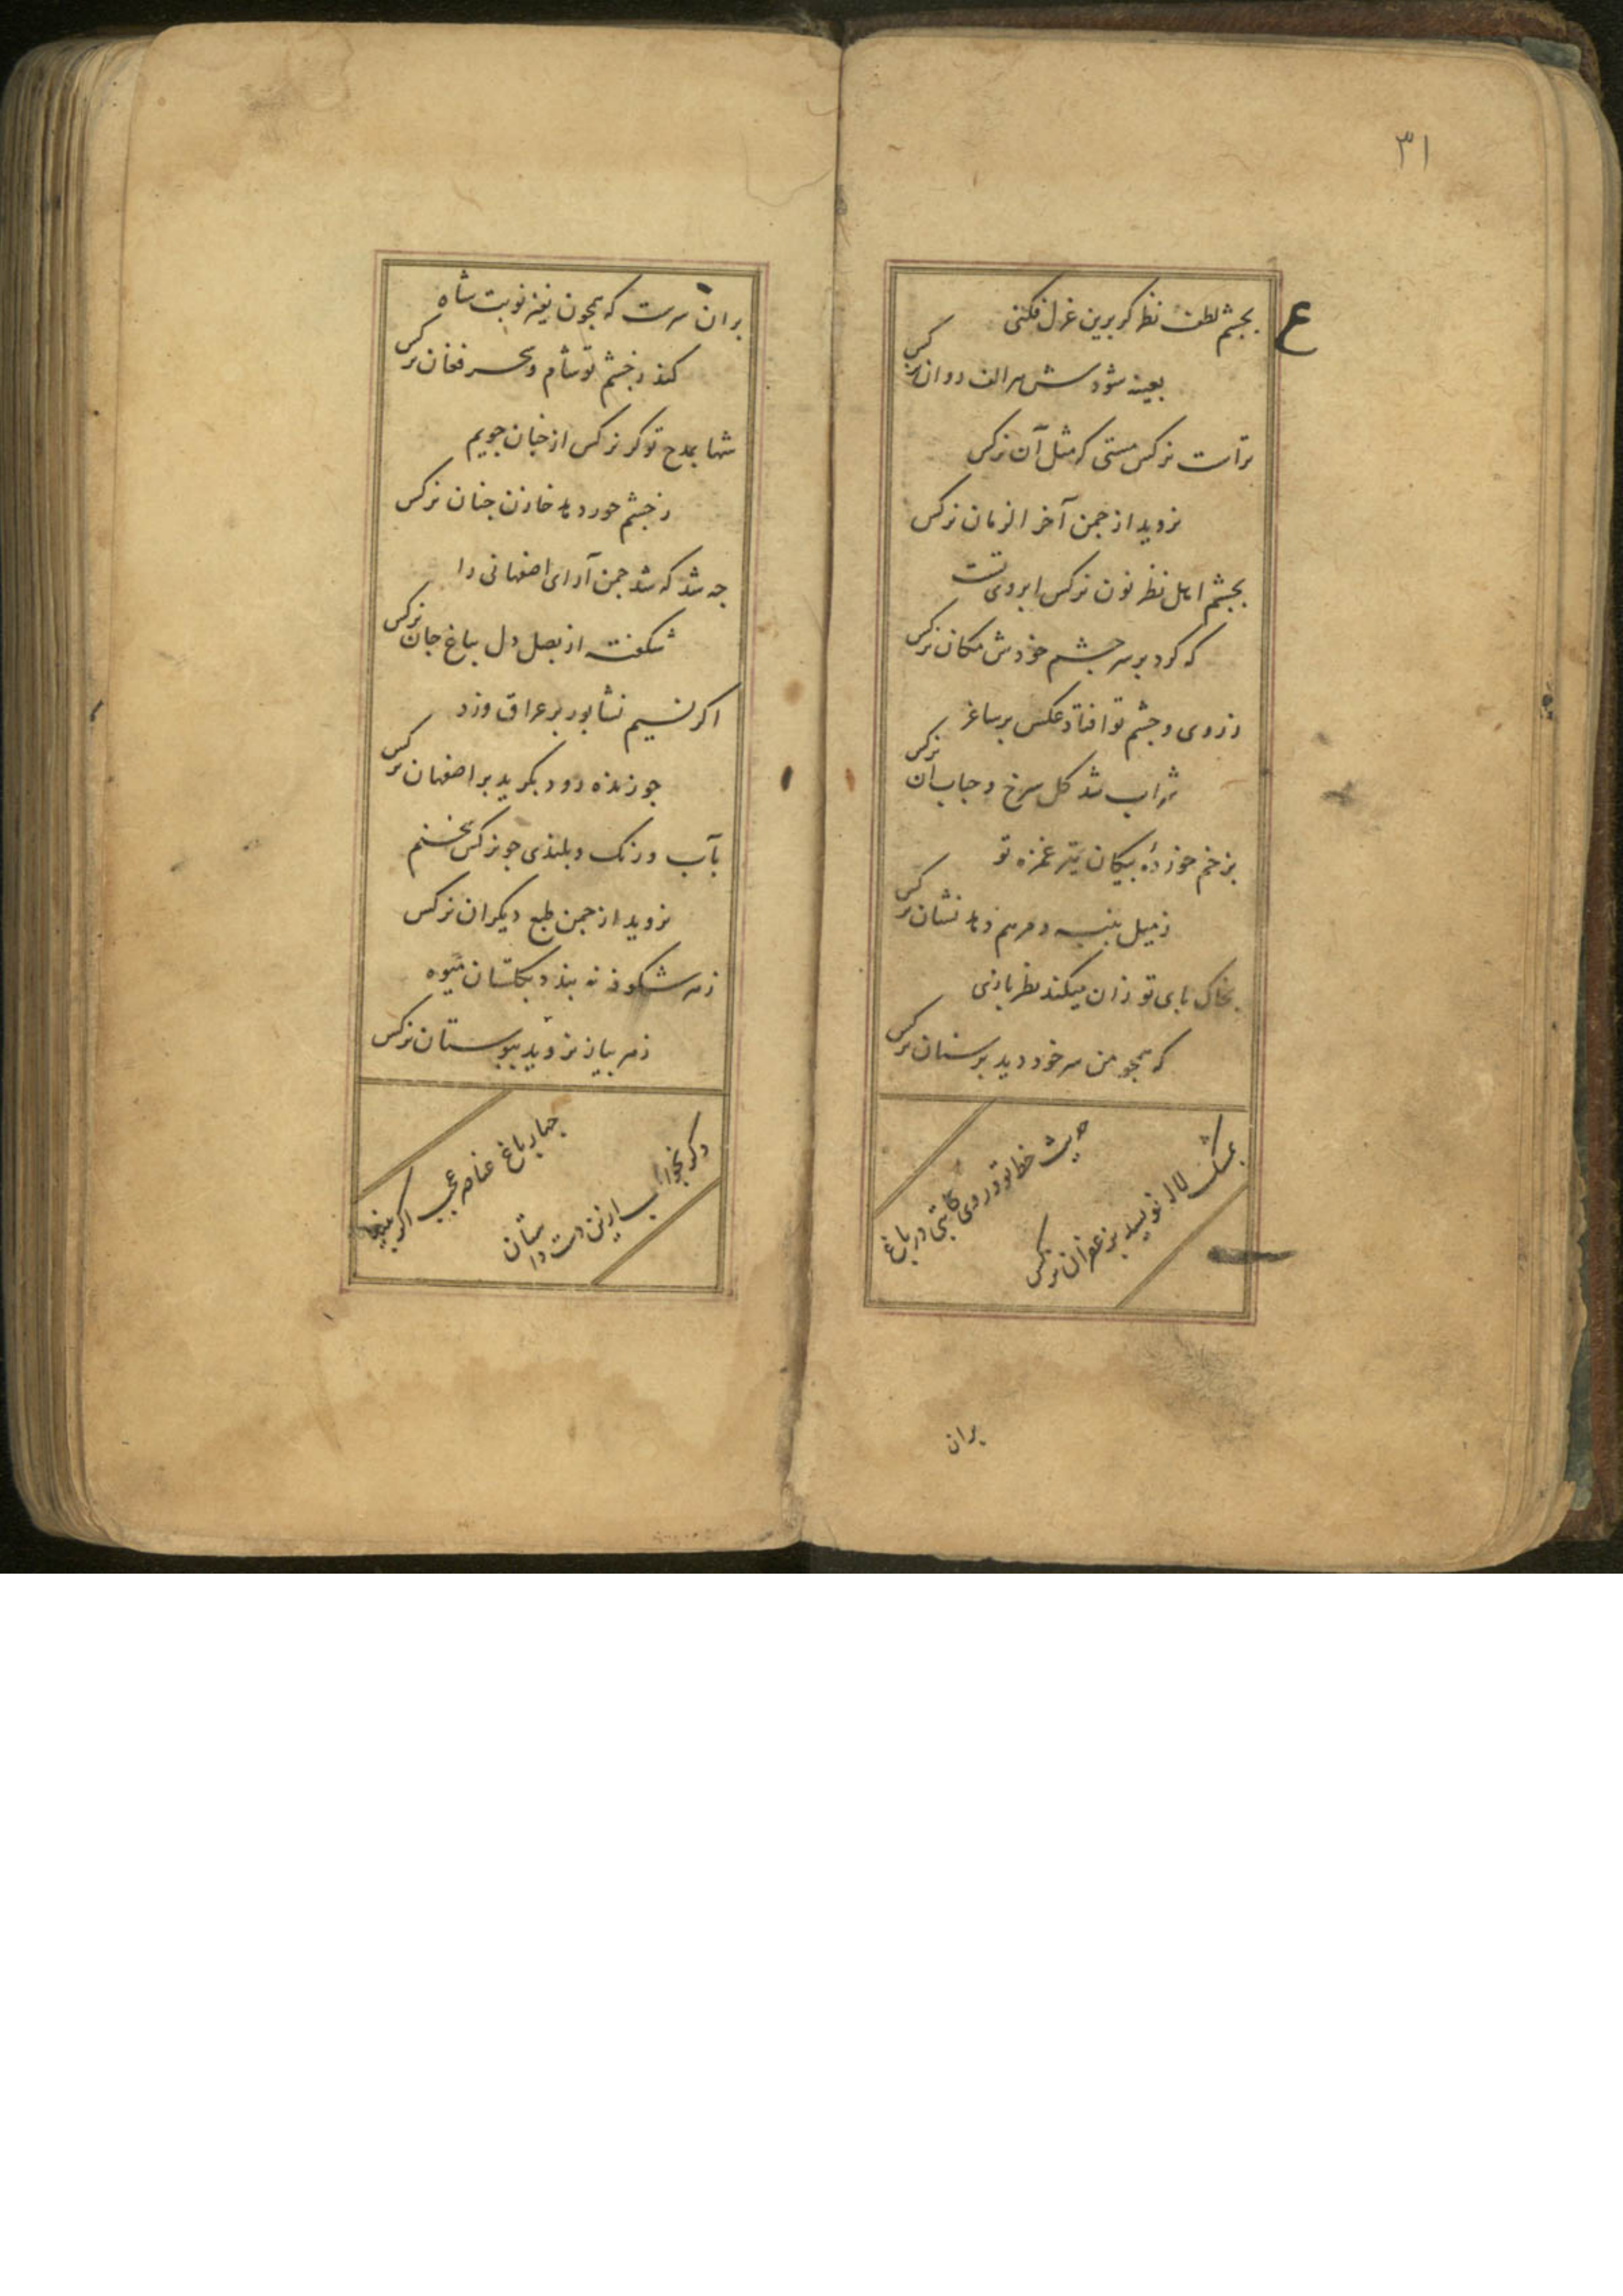 ۳۱
ع
بجشم لطف نظر کر برین غزل فکنی
بعینه شود سر الف روان نرکس
تراست نرکس مستی که مثل آن نرکس
نروید از جمن آخر الزمان نرکس
بجشم اهل نظر نون نرکس ابروی تست
که کرد بر سر جشم خودش مکان نرکس
ز روی و جشم تو افتاد عکس بر ساغر
شراب شد کل سرخ و حباب آن نرکس
بزخم خورده بیکان تیر غمزه تو
ز میل بنبه و مرهم دهد نشان نرکس
بخاک بای تو زان میکند نظر بازی
که همجو من سر خود دید بر سنان نرکس
حدیث خط تو در وی کاتبی در باغ
بمشک لاله نویسد بزعفران نرکس
بران
بران سرست که همجون نفیر نوبت شاه
کند ز خشم تو شام و سحر فغان نرکس
شها بمدح تو کر نرکس از جنان جویم
ز جشم حور دهد خازن جنان نرکس
جه شد که شد جمن آرای اصفهانی را
شکفته از بصل دل بباغ جان نرکس
اکر نسیم نشابور بر عراق وزد
جو زنده رود بکرید بر اصفهان نرکس
بآب و رنک و بلندی جو نرکس سخنم
نروید از جمن طبع دیکران نرکس
ز هر شکوفه نه بندد بکلستان میوه
ز هر بیاز نروید ببوستان نرکس
جهار باغ عناصر عجب اکر
دکر بخواب ازین دست داستان